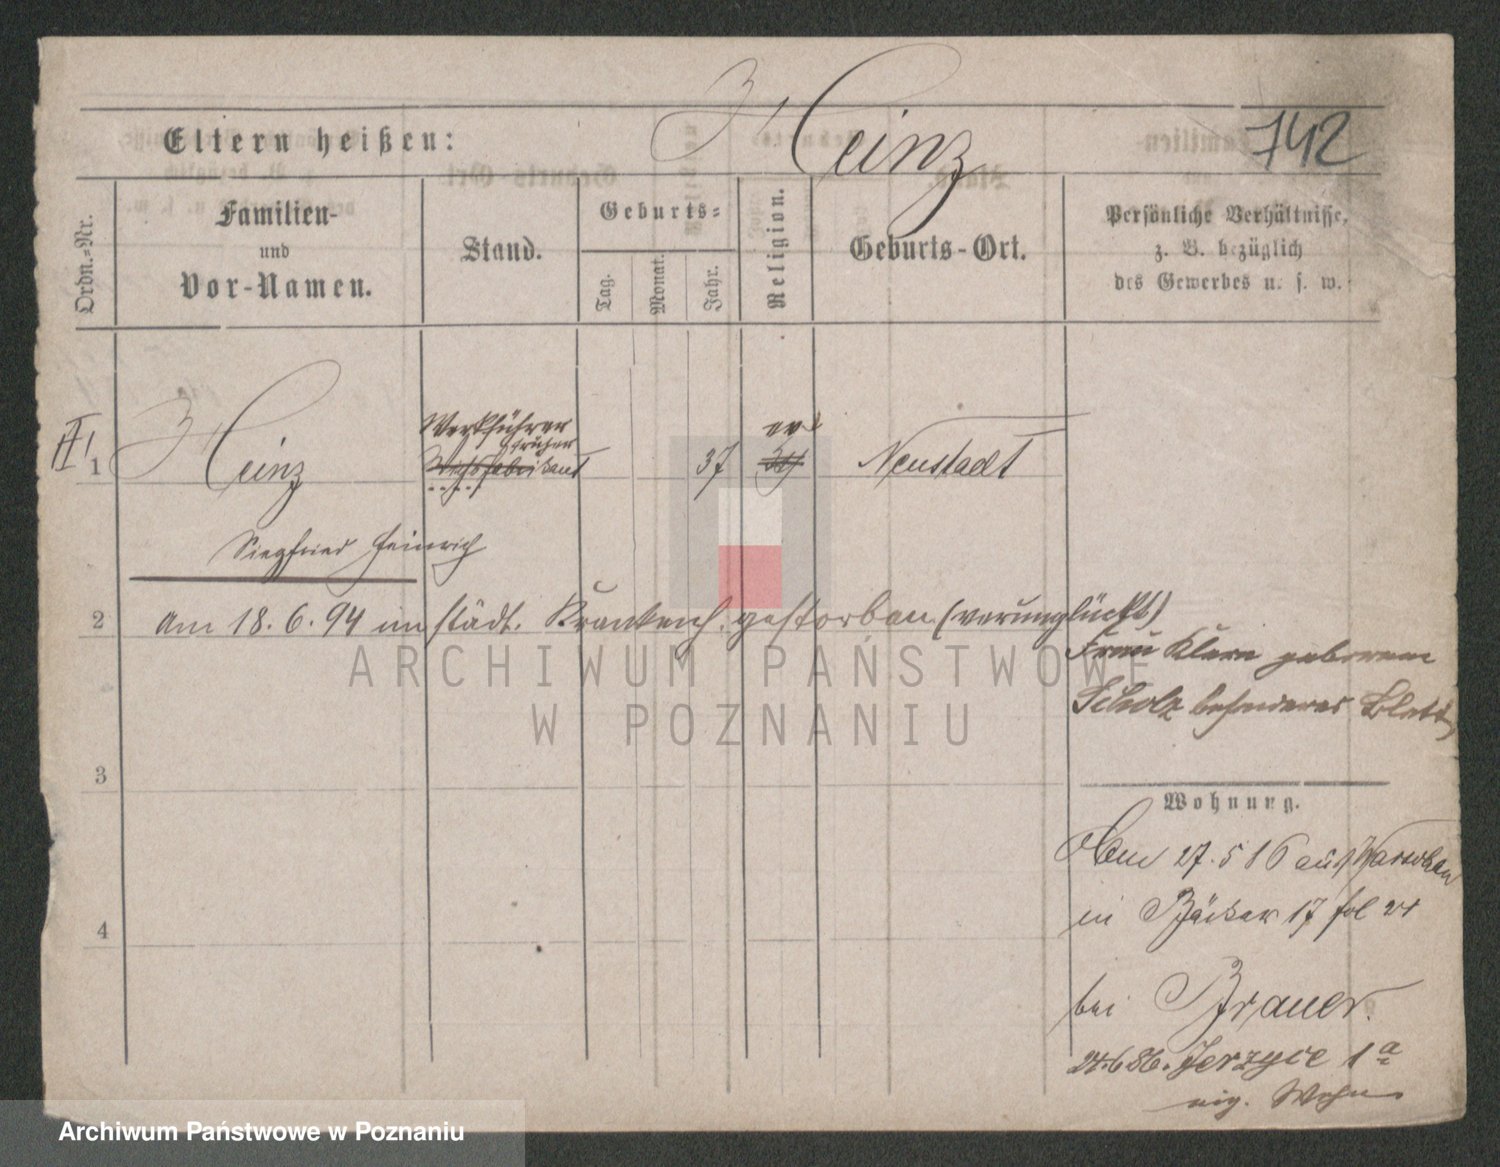 Heinz
742
Eltern heißen:
Ordn.-Nr.
Familien-
und
Vor-Namen.
Stand.
Geburts-
Tag.
Monat.
Jahr.
Religion.
Geburts-Ort.
Persönliche Verhältnisse,
z. B. bezüglich
des Gewerbes u. s. w.
Werkführer
früher
1 Heinz 37 ev Neustadt
Siegfried Heinrich
2 am 18. 6. 94 im städt. Krankenh. gestorben (verunglückt)
Frau Klara geborene
Scholz besonderes Blatt
3
Wohnung.
27. 5 86 aus Warschau
in Bäcker 17 fol
4
bei Brauer.
24.6 86. Jerzyce 1a
eig. Wohn
ARCHIWUM PAŃSTWOWE
W POZNANIU
Archiwum Państwowe w Poznaniu